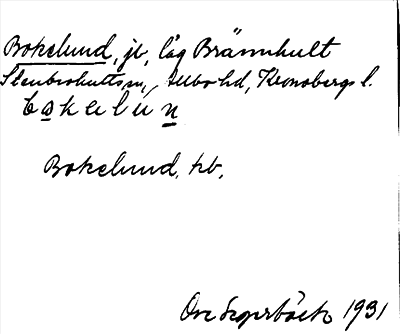 Bokelund, jb, låg Brännhult
Stenbrohults sn, Allbo hd, Kronobergs l.
bo̲kɐlun̲
Bokelund, kb.
Ove Segerbäck 1931